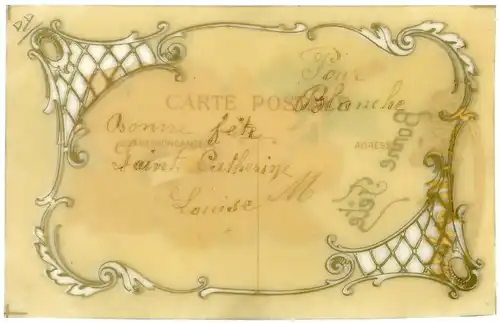 44
Pour
Blanche
CARTE POSTALE
Bonne fête
CORRESPONDANCE
ADRESSE
Saint Catherine
Louise M
Bonne
Fête